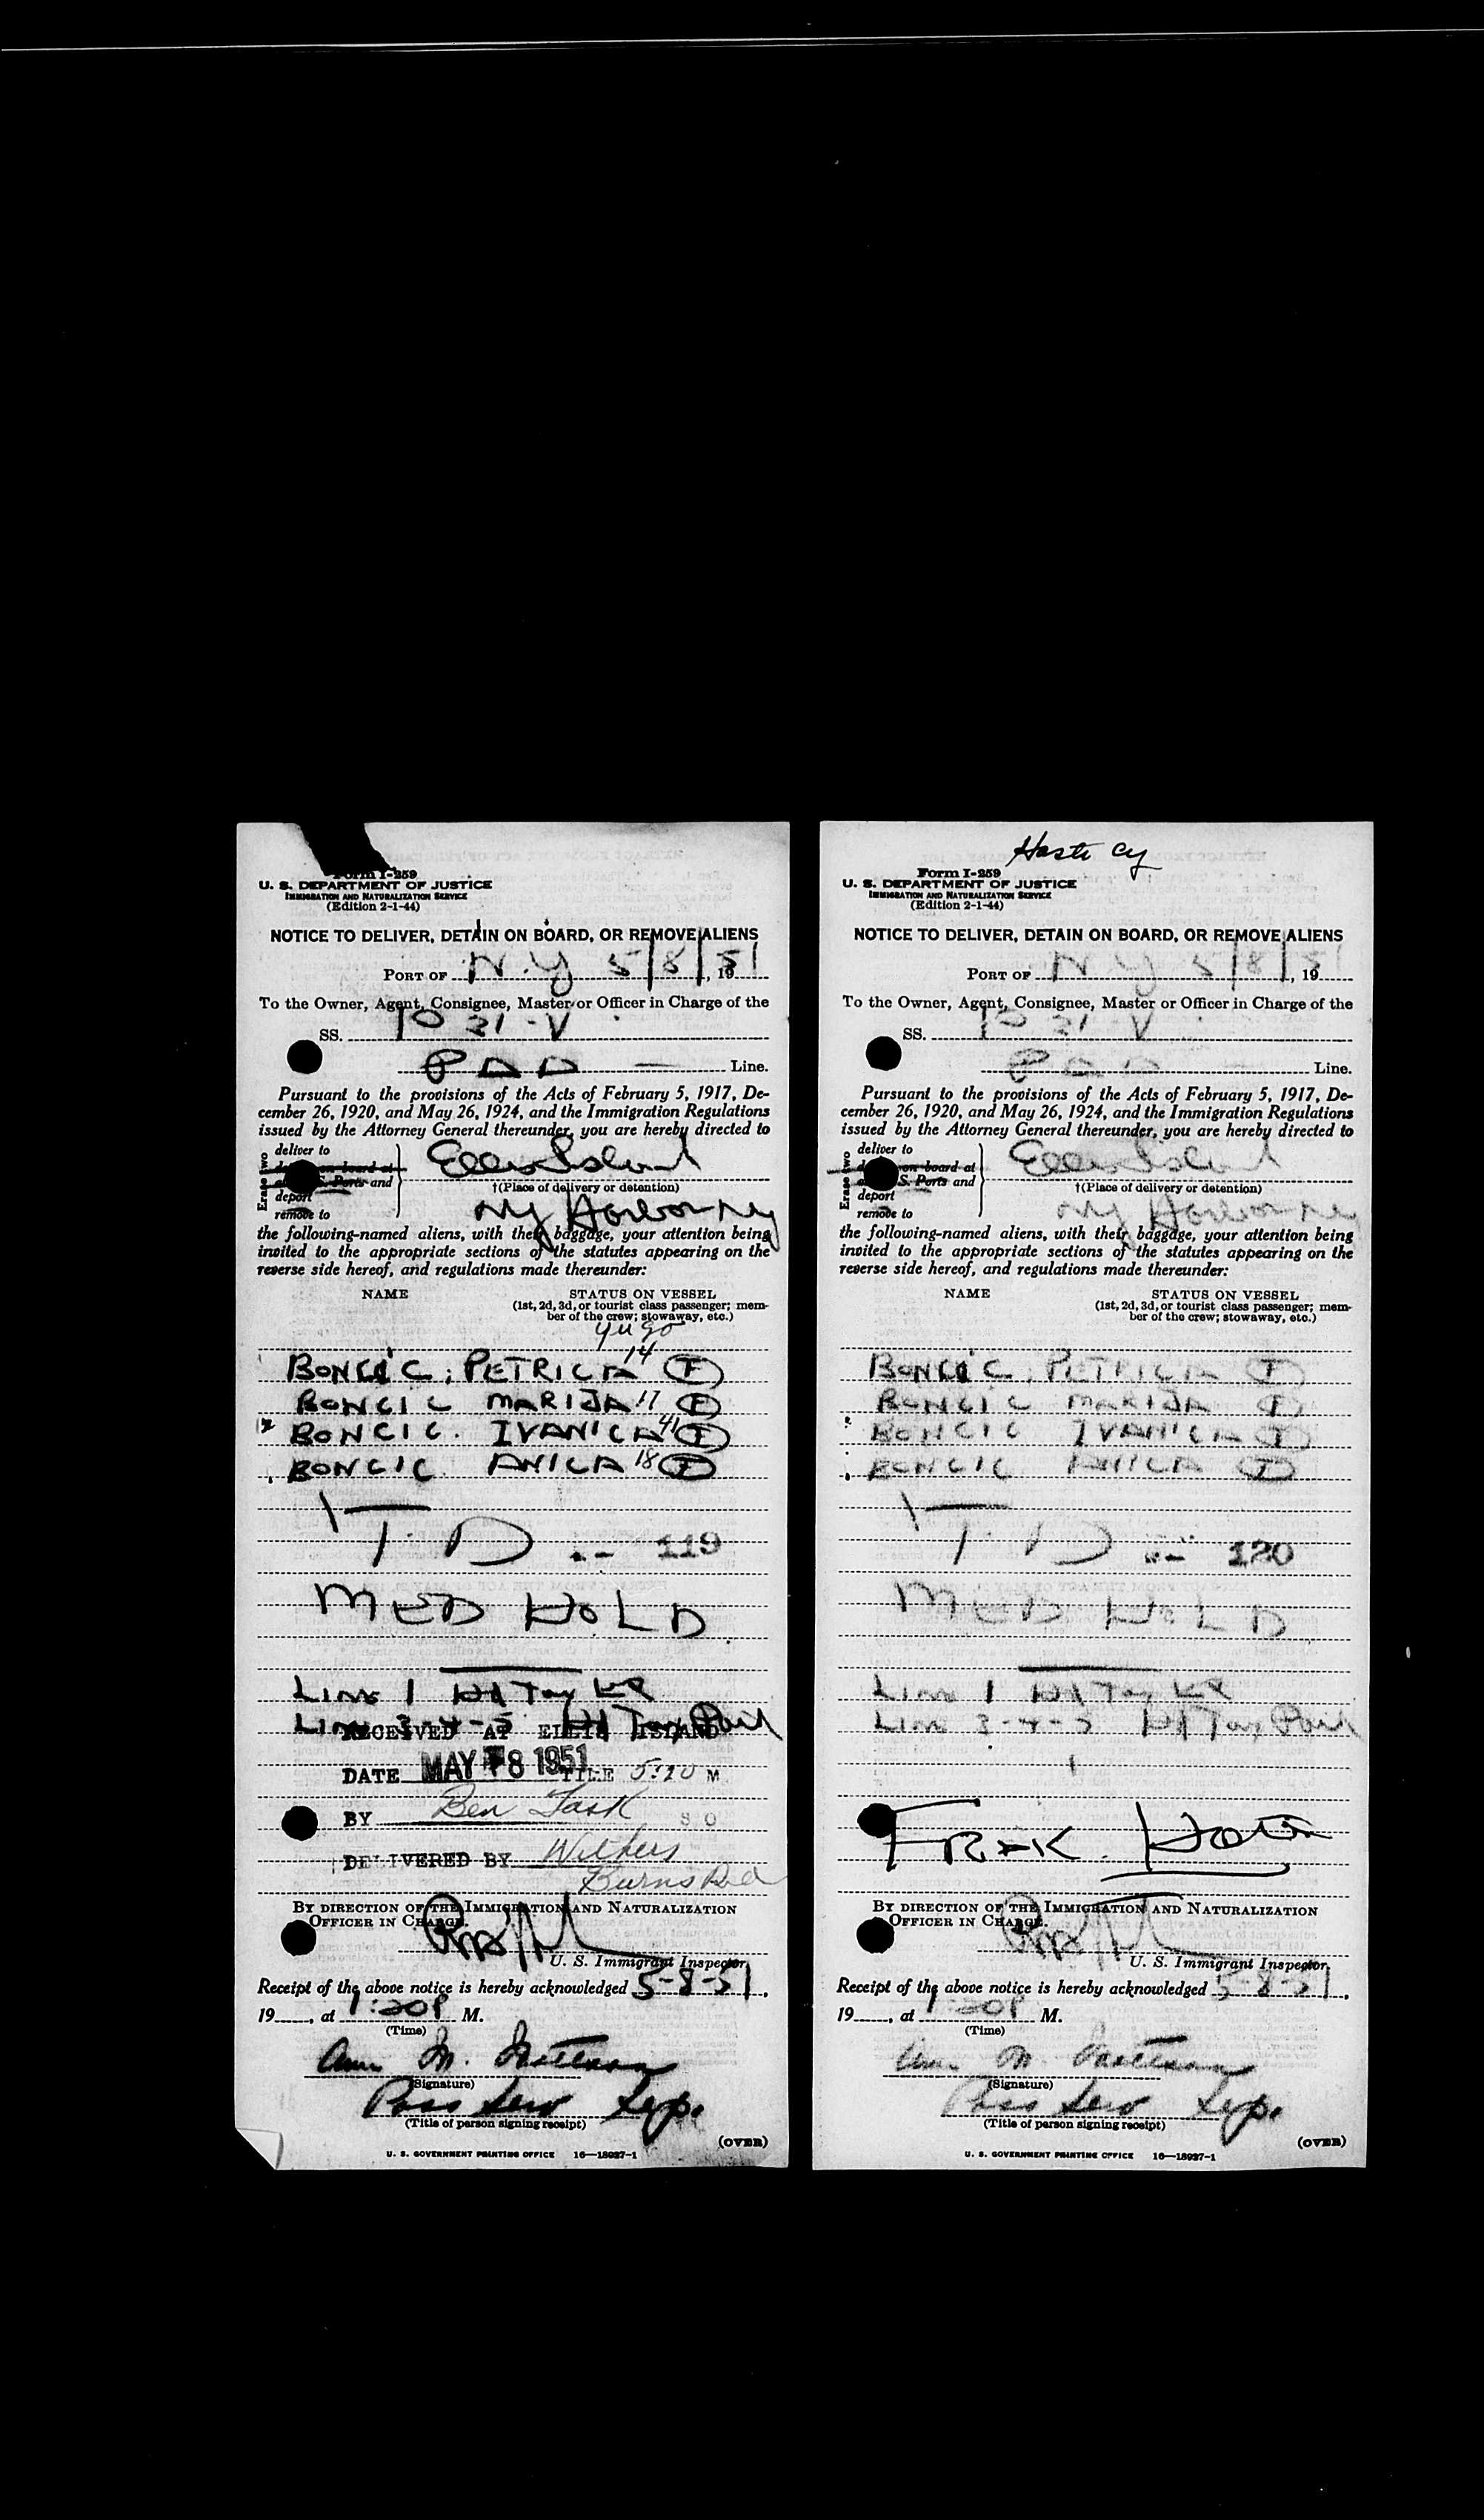 Form I-259
U. S. DEPARTMENT OF JUSTICE
IMMIGRATION AND NATURALIZATION SERVICE
(Edition 2-1-44)
NOTICE TO DELIVER, DETAIN ON BOARD, OR REMOVE ALIENS
PORT OF N.Y 5/8/51, 19
To the Owner, Agent, Consignee, Master or Officer in Charge of the
SS. 10 31-V
PAA — Line.
Pursuant to the provisions of the Acts of February 5, 1917, De-
cember 26, 1920, and May 26, 1924, and the Immigration Regulations
issued by the Attorney General thereunder, you are hereby directed to
Erase two
deliver to
on board at
S. Ports and
deport
remove to
Ellis Island
†(Place of delivery or detention)
NY Harbor NY
the following-named aliens, with their baggage, your attention being
invited to the appropriate sections of the statutes appearing on the
reverse side hereof, and regulations made thereunder:
NAME STATUS ON VESSEL
(1st, 2d, 3d, or tourist class passenger; mem-
ber of the crew; stowaway, etc.)
Yugo
BONCIC, PETRICA 14 F
BONCIC MARIJA 17 F
BONCIC. IVANICA 41 F
BONCIC ANICA 18 F
T. D 119
MED HOLD
Line 1 Hd Tax
Line 3-4-5 Hd Tax Paid
RECEIVED AT ELLIS ISLAND
DATE MAY 8 1951 TIME 5:20 M
BY Ben Task S O
DELIVERED BY Withers
Burns
BY DIRECTION OF THE IMMIGRATION AND NATURALIZATION
OFFICER IN CHARGE.
U. S. Immigrant Inspector.
Receipt of the above notice is hereby acknowledged 5-8-51,
19, at 1:20P M.
(Time)
Ann M.
(Signature)
Pass Serv
(Title of person signing receipt)
(OVER)
U. S. GOVERNMENT PRINTING OFFICE 16—18937-1
Form I-259
U. S. DEPARTMENT OF JUSTICE
IMMIGRATION AND NATURALIZATION SERVICE
(Edition 2-1-44)
NOTICE TO DELIVER, DETAIN ON BOARD, OR REMOVE ALIENS
PORT OF N Y 5/8/51, 19
To the Owner, Agent, Consignee, Master or Officer in Charge of the
SS. 10 31-V
PAA Line.
Pursuant to the provisions of the Acts of February 5, 1917, De-
cember 26, 1920, and May 26, 1924, and the Immigration Regulations
issued by the Attorney General thereunder, you are hereby directed to
Erase two
deliver to
on board at
S. Ports and
deport
remove to
Ellis Island
†(Place of delivery or detention)
NY Harbor NY
the following-named aliens, with their baggage, your attention being
invited to the appropriate sections of the statutes appearing on the
reverse side hereof, and regulations made thereunder:
NAME STATUS ON VESSEL
(1st, 2d, 3d, or tourist class passenger; mem-
ber of the crew; stowaway, etc.)
BONCIC, PETRICA F
BONCIC MARIJA F
BONCIC IVANICA F
BONCIC ANICA F
T. D 120
MED HOLD
Line 1 Hd Tax
Line 3-4-5 Hd Tax Paid
BY DIRECTION OF THE IMMIGRATION AND NATURALIZATION
OFFICER IN CHARGE.
U. S. Immigrant Inspector.
Receipt of the above notice is hereby acknowledged 5-8-51,
19, at 1:20P M.
(Time)
Ann M.
(Signature)
Pass Serv
(Title of person signing receipt)
(OVER)
U. S. GOVERNMENT PRINTING OFFICE 16—18937-1